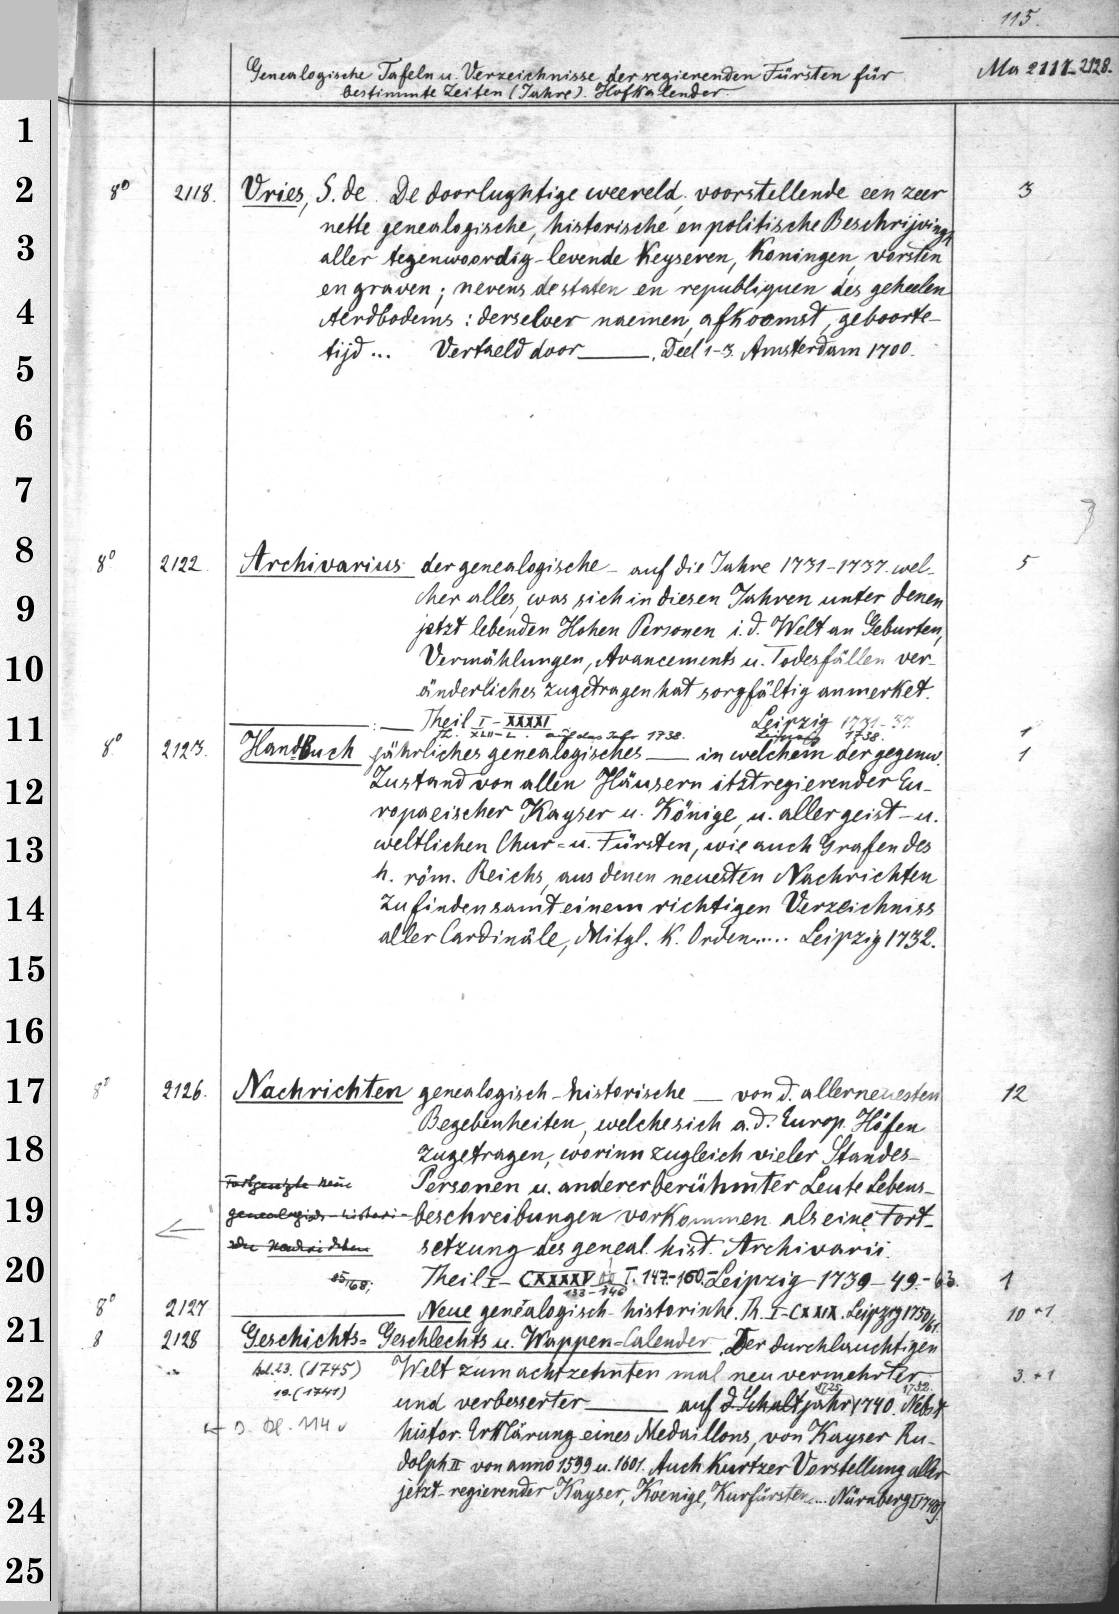 115.
Genealogische Tafeln u. Verzeichnisse der regierenden Fürsten für Ma 2118-2128.
bestimmte Zeiten (Jahre). Hofkalender.
1
2 8° 2118. Vries, S. de. De doorlughtige weereld, voorstellende een zeer 3
nette genealogische, historische en politische Beschrijvingh
3 aller tegenwoordig-levende Keyseren, Koningen, vorsten
en graven; nevens de staten en republiquen des geheelen
4 Aerdbodems: derselver naemen, afkoomst, geboorte-
5 tijd... Vertaeld door ______. Deel 1-3. Amsterdam 1700.
6
7
8 8° 2122. Archivarius der genealogische - auf die Jahre 1731-1737. wel- 5
9 cher alles, was sich in diesen Jahren unter denen
jetzt lebenden Hohen Personen i. d. Welt an Geburten,
10 Vermählungen, Avancements u. Todesfällen ver-
änderliches zugetragen hat sorgfältig anmerket.
11 ______: __ Theil I-XXXXI Leipzig 1731-37.
XLII-L. auf das Jahr 1738. Leipzig 1738. 1
8° 2123. Handbuch jährliches genealogisches ___ in welchem der gegenw. 1
12 Zustand von allen Häusern itztregierender Eu-
ropaeischer Kayser u. Könige, u. aller geist- u.
13 weltlichen Chur- u. Fürsten, wie auch Grafen des
h. röm. Reichs, aus denen neuesten Nachrichten
14 zu finden samt einem richtigen Verzeichniss
aller Cardinäle, Mitgl. K. Orden..... Leipzig 1732.
15
16
17 8° 2126. Nachrichten genealogisch-historische __ von d. allerneuesten 12
Begebenheiten, welche sich a. d. Europ. Höfen
18 zugetragen, worinn zugleich vieler Standes-
Fortgesetzte neue Personen u. anderer berühmter Leute Lebens-
19 genealogisch-histori- beschreibungen vorkommen als eine Fort-
sche Nachrichten setzung des geneal. hist. Archivarii.
20 Theil I-CXXXXV T. 147-160. Leipzig 1739-49.-63. 1
133-146
8° 2127 ______ Neue genealogisch-historische. Th. I-CXXIX. Leipzig 1750/61. 10+1
21 8 2128 Geschichts- Geschlechts u. Wappen-Calender. Der durchlauchtigen
22 23. (1745) Welt zum achtzehnten mal neu vermehrter 3.+1
19. (1741) 1725 1732.
und verbesserter ______ auf d. Schaltjahr 1740. Nebst
D. Bl. 114 histor. Erklärung eines Medaillons, von Kayser Ru-
23 dolph II von anno 1599 u. 1601. Auch Kurtzer Vorstellung aller
jetzt-regierender Kayser, Koenige, Kurfürsten.... Nürnberg [1740].
24
25